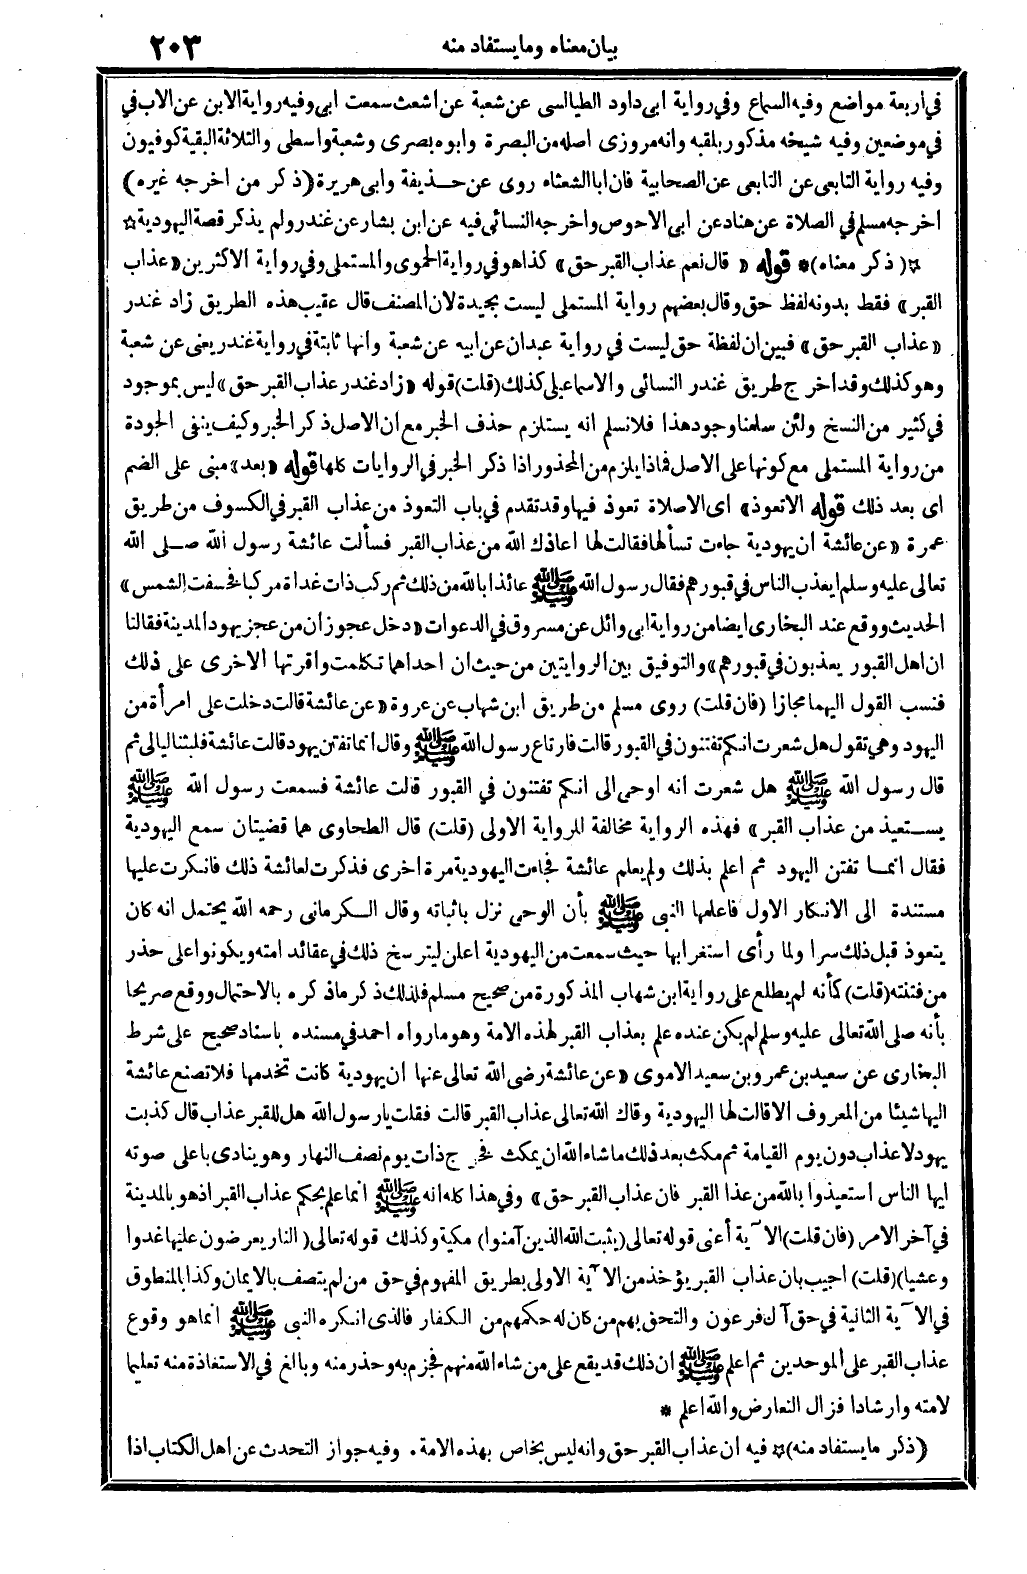 بيان معناه وما يستفاد منه ٢٠٣
فى اربعة مواضع وفيه السماع وفى رواية ابى داود الطيالسى عن شعبة عن اشعث سمعت ابى وفيه رواية الابن عن الاب فى
فى موضعين وفيه شيخه مذكور بلقبه وانه مروزى اصله من البصرة وابوه بصرى وشعبة واسطى والثلاثة البقية كوفيون
وفيه رواية التابعى عن التابعى عن الصحابية فان ابا الشعثاء روى عن حذيفة وابى هريرة (ذكر من اخرجه غيره)
اخرجه مسلم فى الصلاة عن هناد عن ابى الاحوص واخرجه النسائى فيه عن ابن بشار عن غندر ولم يذكر قصة اليهودية ☆
☆ (ذكر معناه) * قوله « قال نعم عذاب القبر حق » كذا هو فى رواية الحموى والمستملى وفى رواية الاكثرين « عذاب
القبر » فقط بدونه لفظ حق وقال بعضهم رواية المستملى ليست بجيدة لان المصنف قال عقيب هذه الطريق زاد غندر
« عذاب القبر حق » فبين ان لفظة حق ليست في رواية عبدان عن ابيه عن شعبة وانها ثابتة فى رواية غندر يعنى عن شعبة
وهو كذلك وقد اخرج طريق غندر النسائى والاسماعيلى كذلك (قلت) قوله « زاد غندر عذاب القبر حق » ليس بموجود
فى كثير من النسخ ولئن سلمنا وجود هذا فلا نسلم انه يستلزم حذف الخبر مع ان الاصل ذكر الخبر وكيف ينفى الجودة
من رواية المستملى مع كونها على الاصل فماذا يلزم من المحذور اذا ذكر الخبر فى الروايات كلها قوله « بعد » مبنى على الضم
اى بعد ذلك قوله الا تعوذ » اى الا صلاة تعوذ فيها وقد تقدم فى باب التعوذ من عذاب القبر فى الكسوف من طريق
عمرة « عن عائشة ان يهودية جاءت تسألها فقالت لها اعاذك الله من عذاب القبر فسألت عائشة رسول الله صلى الله
تعالى عليه وسلم ايعذب الناس فى قبورهم فقال رسول الله ﷺ عائذا بالله من ذلك ثم ركب ذات غداة مركبا فخسفت الشمس »
الحديث ووقع عند البخارى ايضا من رواية ابى وائل عن مسروق فى الدعوات « دخل عجوزان من عجز يهود المدينة فقالتا
ان اهل القبور يعذبون فى قبورهم » والتوفيق بين الروايتين من حيث ان احداهما تكلمت واقرتها الاخرى على ذلك
فنسب القول اليهما مجازا (فان قلت) روى مسلم من طريق ابن شهاب عن عروة « عن عائشة قالت دخلت على امرأة من
اليهود وهى تقول هل شعرت انكم تفتنون فى القبور قالت فارتاع رسول الله ﷺ وقال انما تفتن يهود قالت عائشة فلبثنا ليالى ثم
قال رسول الله ﷺ هل شعرت انه اوحى الى انكم تفتنون فى القبور قالت عائشة فسمعت رسول الله ﷺ
يستعيذ من عذاب القبر » فهذه الرواية مخالفة للرواية الاولى (قلت) قال الطحاوى هما قضيتان سمع اليهودية
فقال انما تفتن اليهود ثم اعلم بذلك ولم يعلم عائشة فجاءت اليهودية مرة اخرى فذكرت لعائشة ذلك فانكرت عليها
مستندة الى الانكار الاول فاعلمها النبى ﷺ بأن الوحى نزل باثباته وقال الكرمانى رحمه الله يحتمل انه كان
يتعوذ قبل ذلك سرا ولما رأى استغرابها حيث سمعت من اليهودية اعلن ليترسخ ذلك فى عقائد امته ويكونوا على حذر
من فتنته (قلت) كأنه لم يطلع على رواية ابن شهاب المذكورة من صحيح مسلم فلذلك ذكر ما ذكره بالاحتمال ووقع صريحا
بأنه صلى الله تعالى عليه وسلم لم يكن عنده علم بعذاب القبر لهذه الامة وهو مارواه احمد فى مسنده باسناد صحيح على شرط
البخارى عن سعيد بن عمرو بن سعيد الاموى « عن عائشة رضى الله تعالى عنها ان يهودية كانت تخدمها فلا تصنع عائشة
اليها شيئا من المعروف الا قالت لها اليهودية وقاك الله تعالى عذاب القبر قالت فقلت يارسول الله هل للقبر عذاب قال كذبت
يهود لا عذاب دون يوم القيامة ثم مكث بعد ذلك ما شاء الله ان يمكث فخرج ذات يوم نصف النهار وهو ينادى باعلى صوته
ايها الناس استعيذوا بالله من عذا القبر فان عذاب القبر حق » وفى هذا كله انه ﷺ انما علم بحكم عذاب القبر اذ هو بالمدينة
فى آخر الامر (فان قلت) الآية أعنى قوله تعالى (يثبت الله الذين آمنوا) مكية وكذلك قوله تعالى (النار يعرضون عليها غدوا
وعشيا) (قلت) اجيب بان عذاب القبر يؤخذ من الآية الاولى بطريق المفهوم فى حق من لم يتصف بالايمان وكذا بالمنطوق
فى الآية الثانية فى حق آل فرعون والتحق بهم من كان له حكمهم من الكفار فالذى انكره النبى ﷺ انما هو وقوع
عذاب القبر على الموحدين ثم اعلم ﷺ ان ذلك قد يقع على من شاء الله منهم فجزم به وحذر منه وبالغ فى الاستعاذة منه تعليما
لامته وارشادا فزال التعارض والله اعلم *
(ذكر ما يستفاد منه) ☆ فيه ان عذاب القبر حق وانه ليس بخاص بهذه الامة. وفيه جواز التحدث عن اهل الكتاب اذا